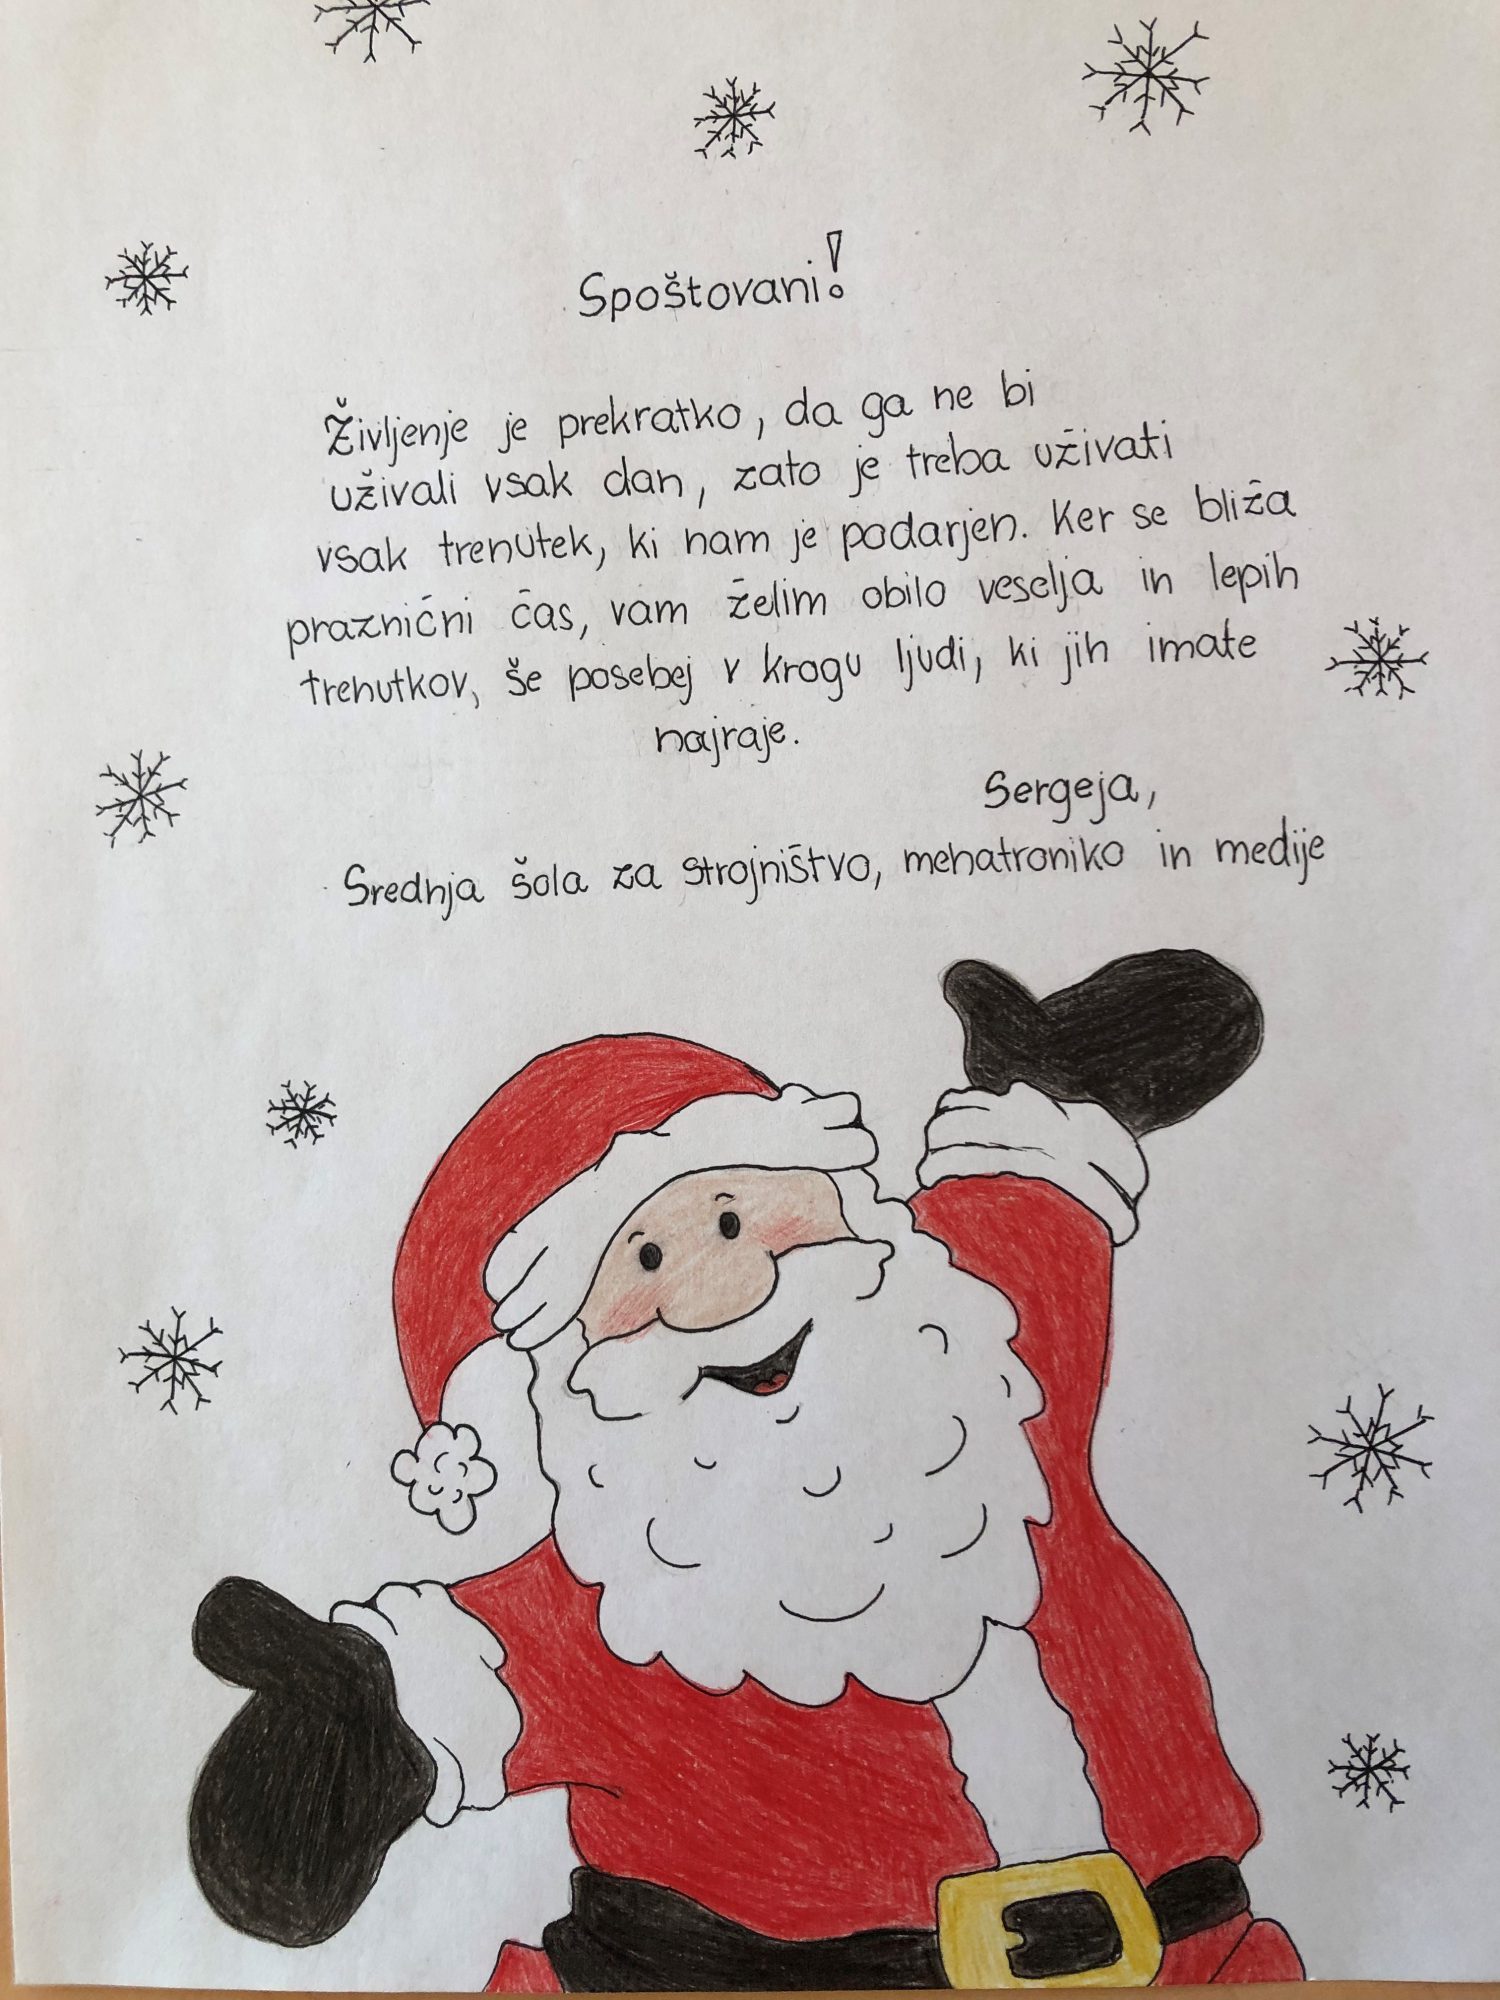 Spoštovani!
Življenje je prekratko, da ga ne bi
uživali vsak dan, zato je treba uživati
vsak trenutek, ki nam je podarjen. Ker se bliža
praznični čas, vam želim obilo veselja in lepih
trenutkov, še posebej v krogu ljudi, ki jih imate
najraje.
Sergeja,
Srednja šola za strojništvo, mehatroniko in medije